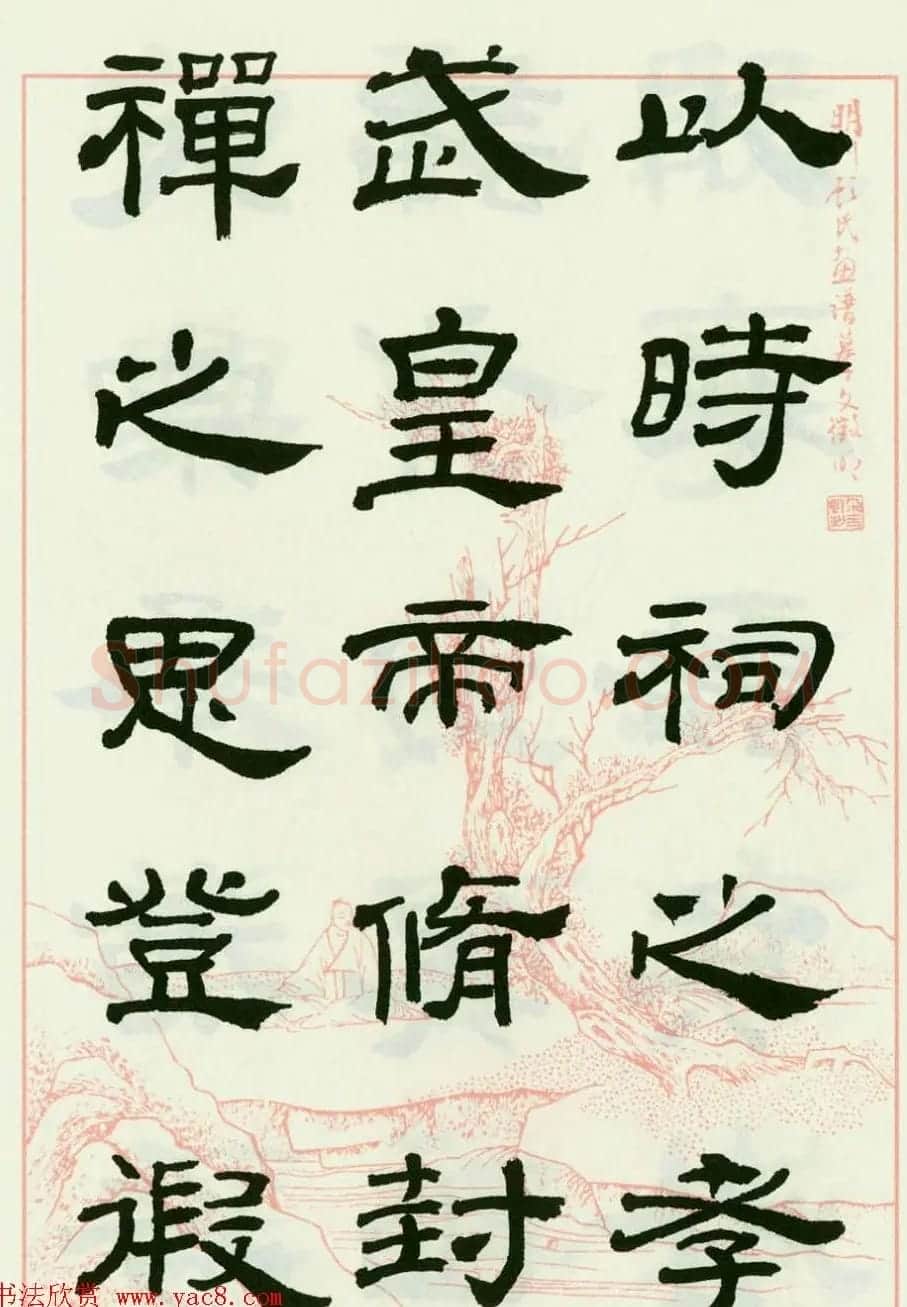 以時祠之孝
武皇帝脩封
禪之思登徦
氏畫譜摹文徵明
Shufazidao.COM
书法欣赏 www.yac8.com